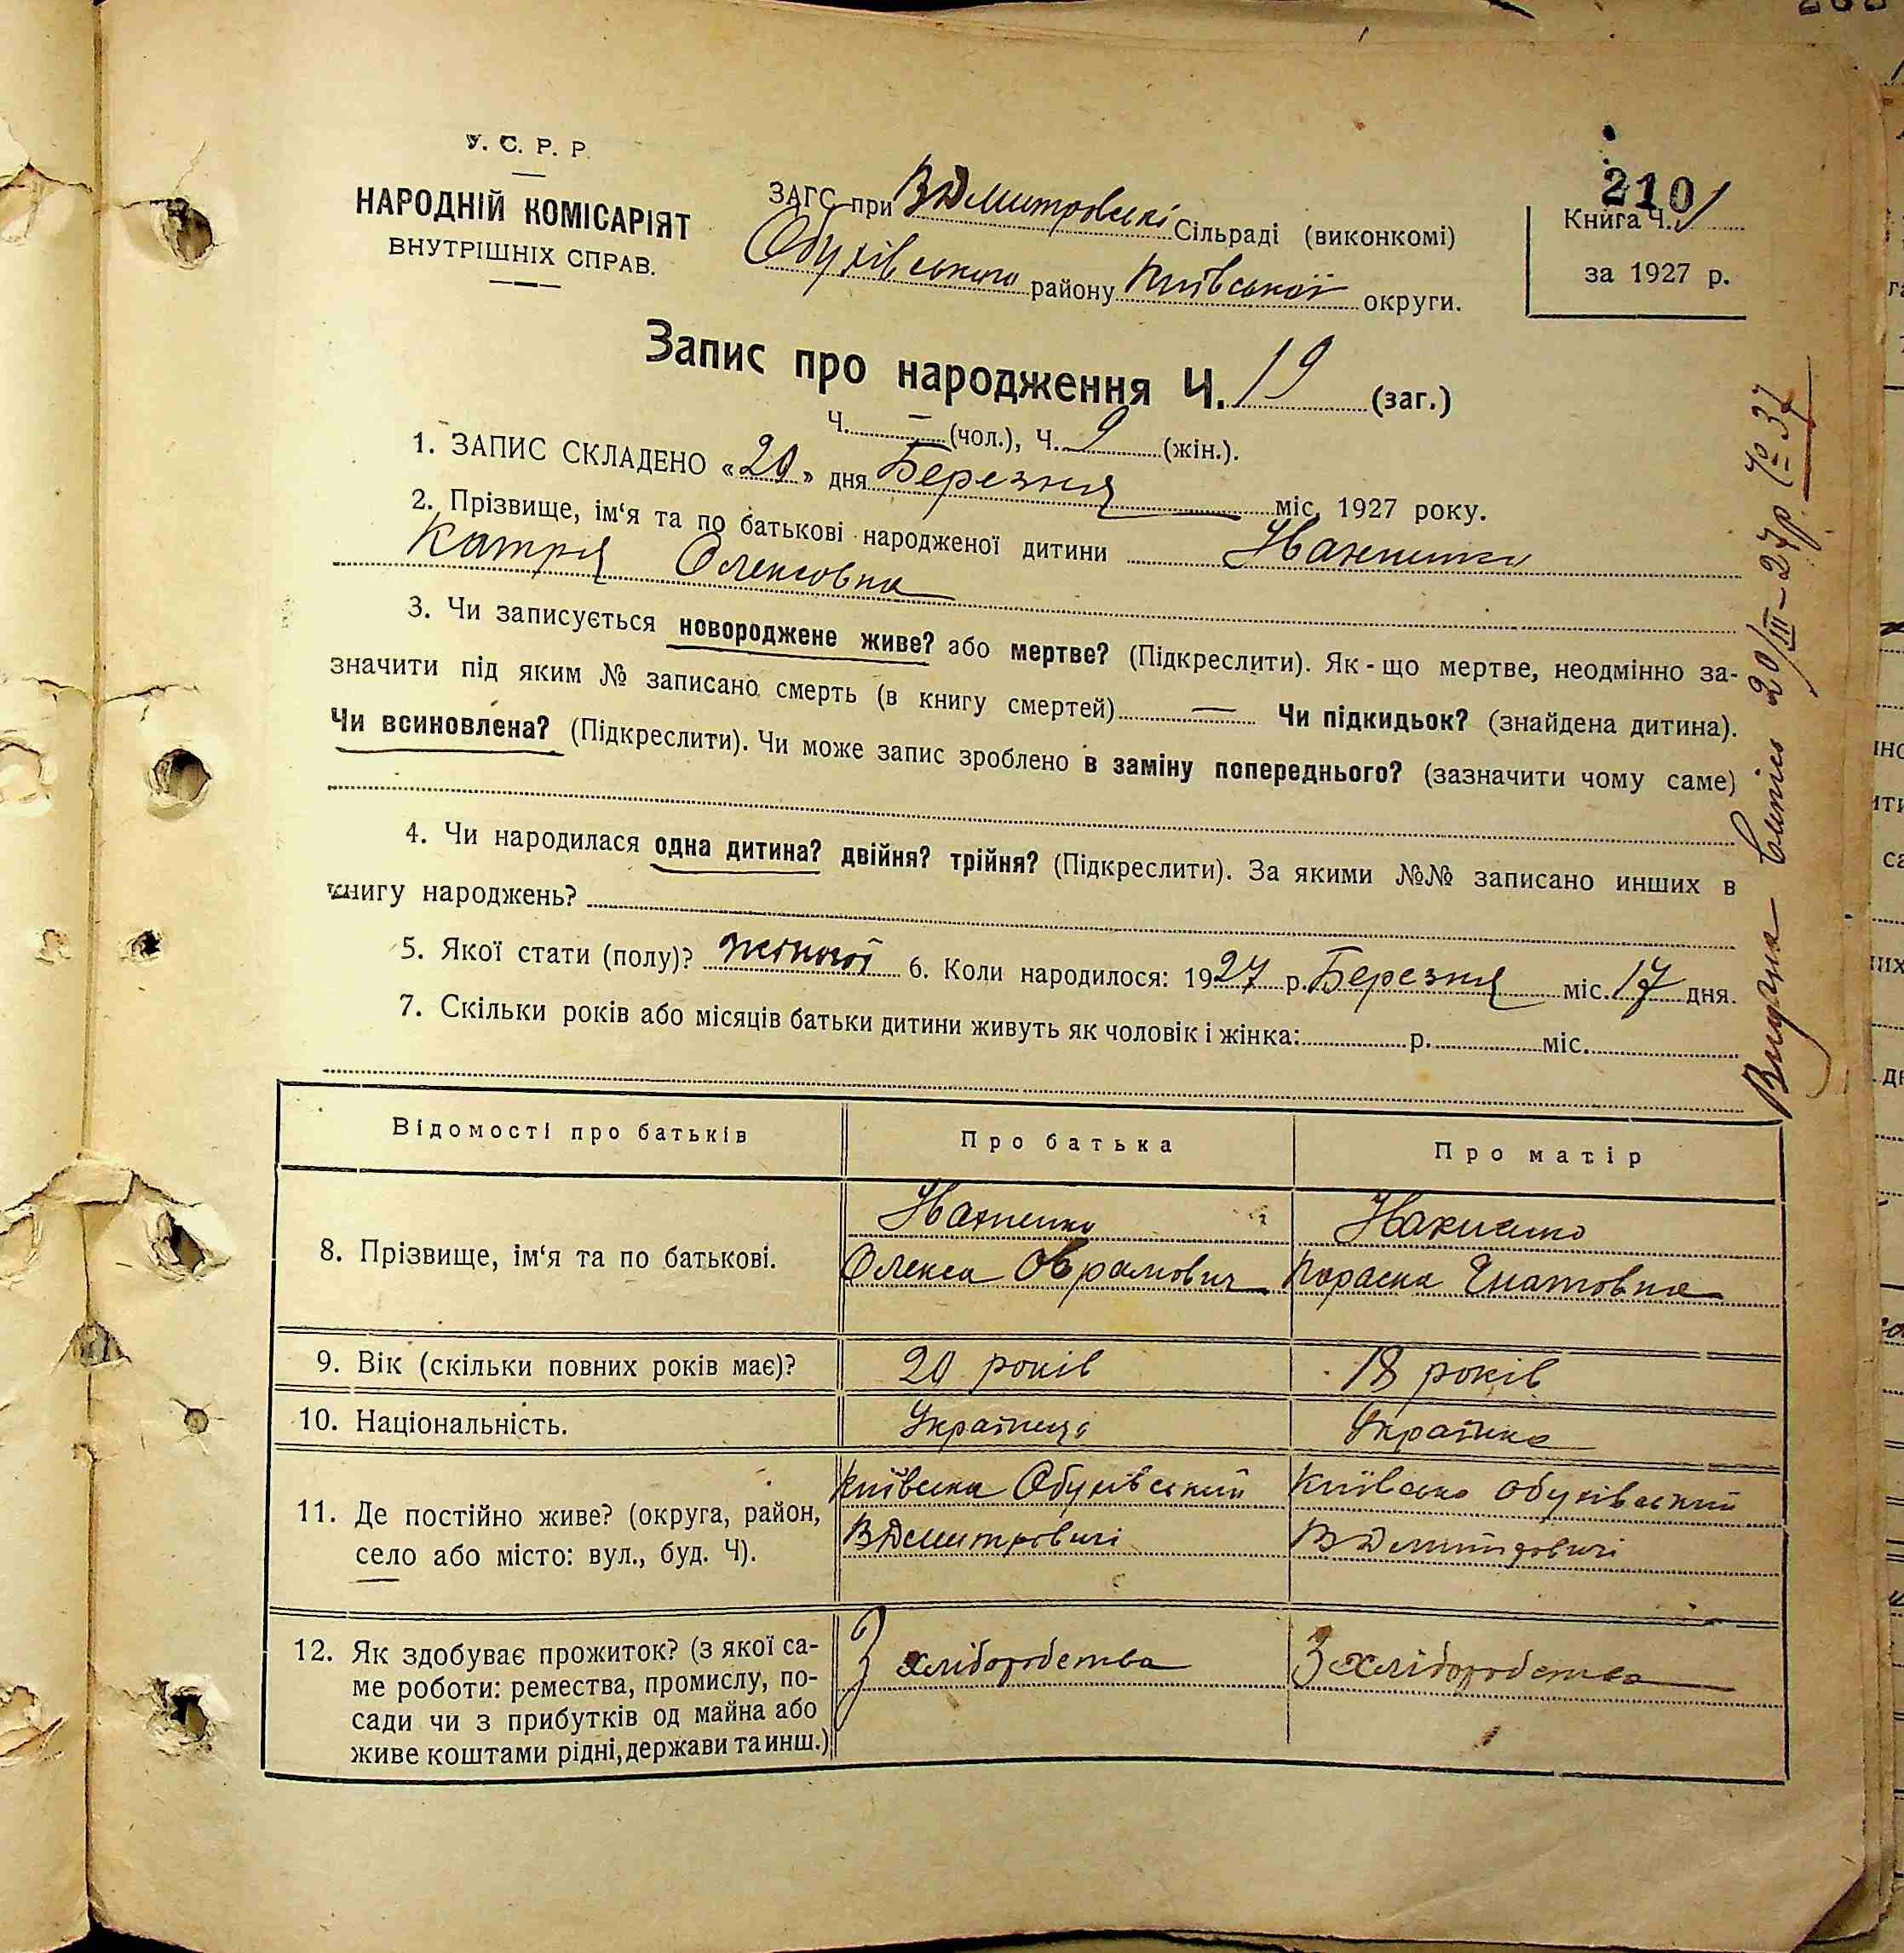 У. С. Р. Р.
НАРОДНІЙ КОМІСАРІЯТ
ВНУТРІШНІХ СПРАВ.
ЗАГС при ВДмитровські Сільраді (виконкомі)
Обухівського району Київської округи.
210
Книга Ч. 1
за 1927 р.
Запис про народження Ч. 19 (заг.)
Ч. — (чол.), Ч. 9 (жін.).
1. ЗАПИС СКЛАДЕНО «20» дня Березня міс. 1927 року.
2. Прізвище, ім‘я та по батькові народженої дитини
Катря Олексовна
3. Чи записується новороджене живе? або мертве? (Підкреслити). Як-що мертве, неодмінно за-
значити під яким № записано смерть (в книгу смертей) — Чи підкидьок? (знайдена дитина).
Чи всиновлена? (Підкреслити). Чи може запис зроблено в заміну попереднього? (зазначити чому саме)
4. Чи народилася одна дитина? двійня? трійня? (Підкреслити). За якими №№ записано инших в
книгу народжень?
5. Якої стати (полу)? жіночої 6. Коли народилося: 1927 р. Березня міс. 17 дня.
7. Скільки років або місяців батьки дитини живуть як чоловік і жінка: р. міс.
Видана 20/III-27р. № 37
Відомості про батьків Про батька Про матір
8. Прізвище, ім‘я та по батькові.
Олекса Оврамович Параска Гнатовна
9. Вік (скільки повних років має)? 20 років 18 років
10. Національність. Українець Українка
11. Де постійно живе? (округа, район,
село або місто: вул., буд. Ч).
Київська Обухівський Київська Обухівський
ВДмитровичі ВДмитровичі
12. Як здобуває прожиток? (з якої са-
ме роботи: ремества, промислу, по-
сади чи з прибутків од майна або
живе коштами рідні, держави та инш.)
З хліборобства З хліборобства